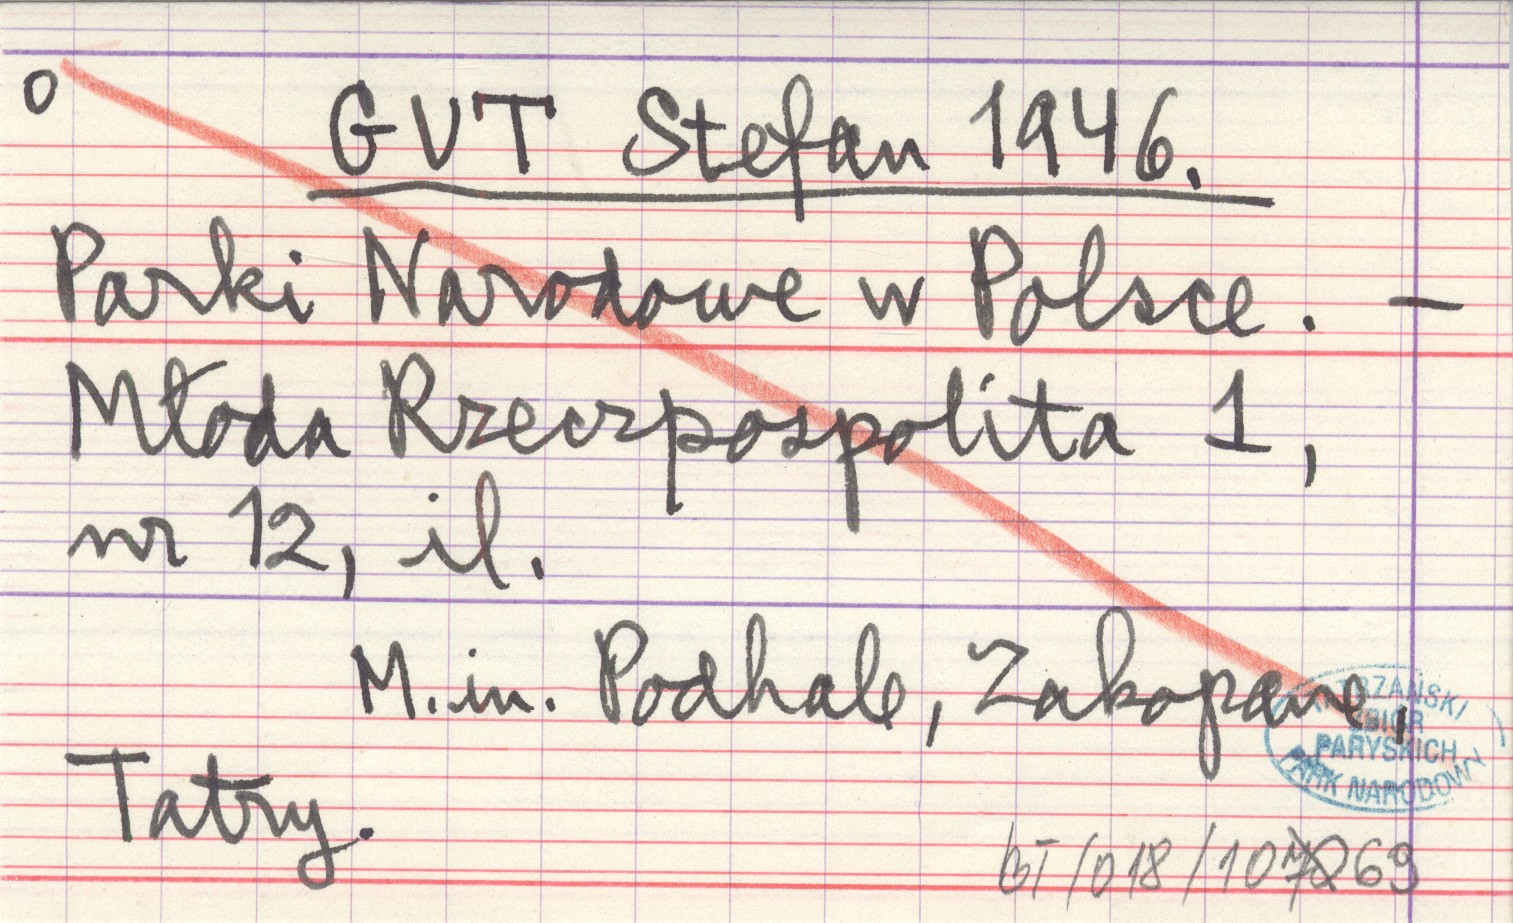 o
GUT Stefan 1946.
Parki Narodowe w Polsce. —
Młoda Rzeczpospolita 1,
nr 12, il.
M.in. Podhale, Zakopane,
Tatry.
TATRZAŃSKI
ZBIÓR
PARYSKICH
PARK NARODOWY
BT/018/10 69